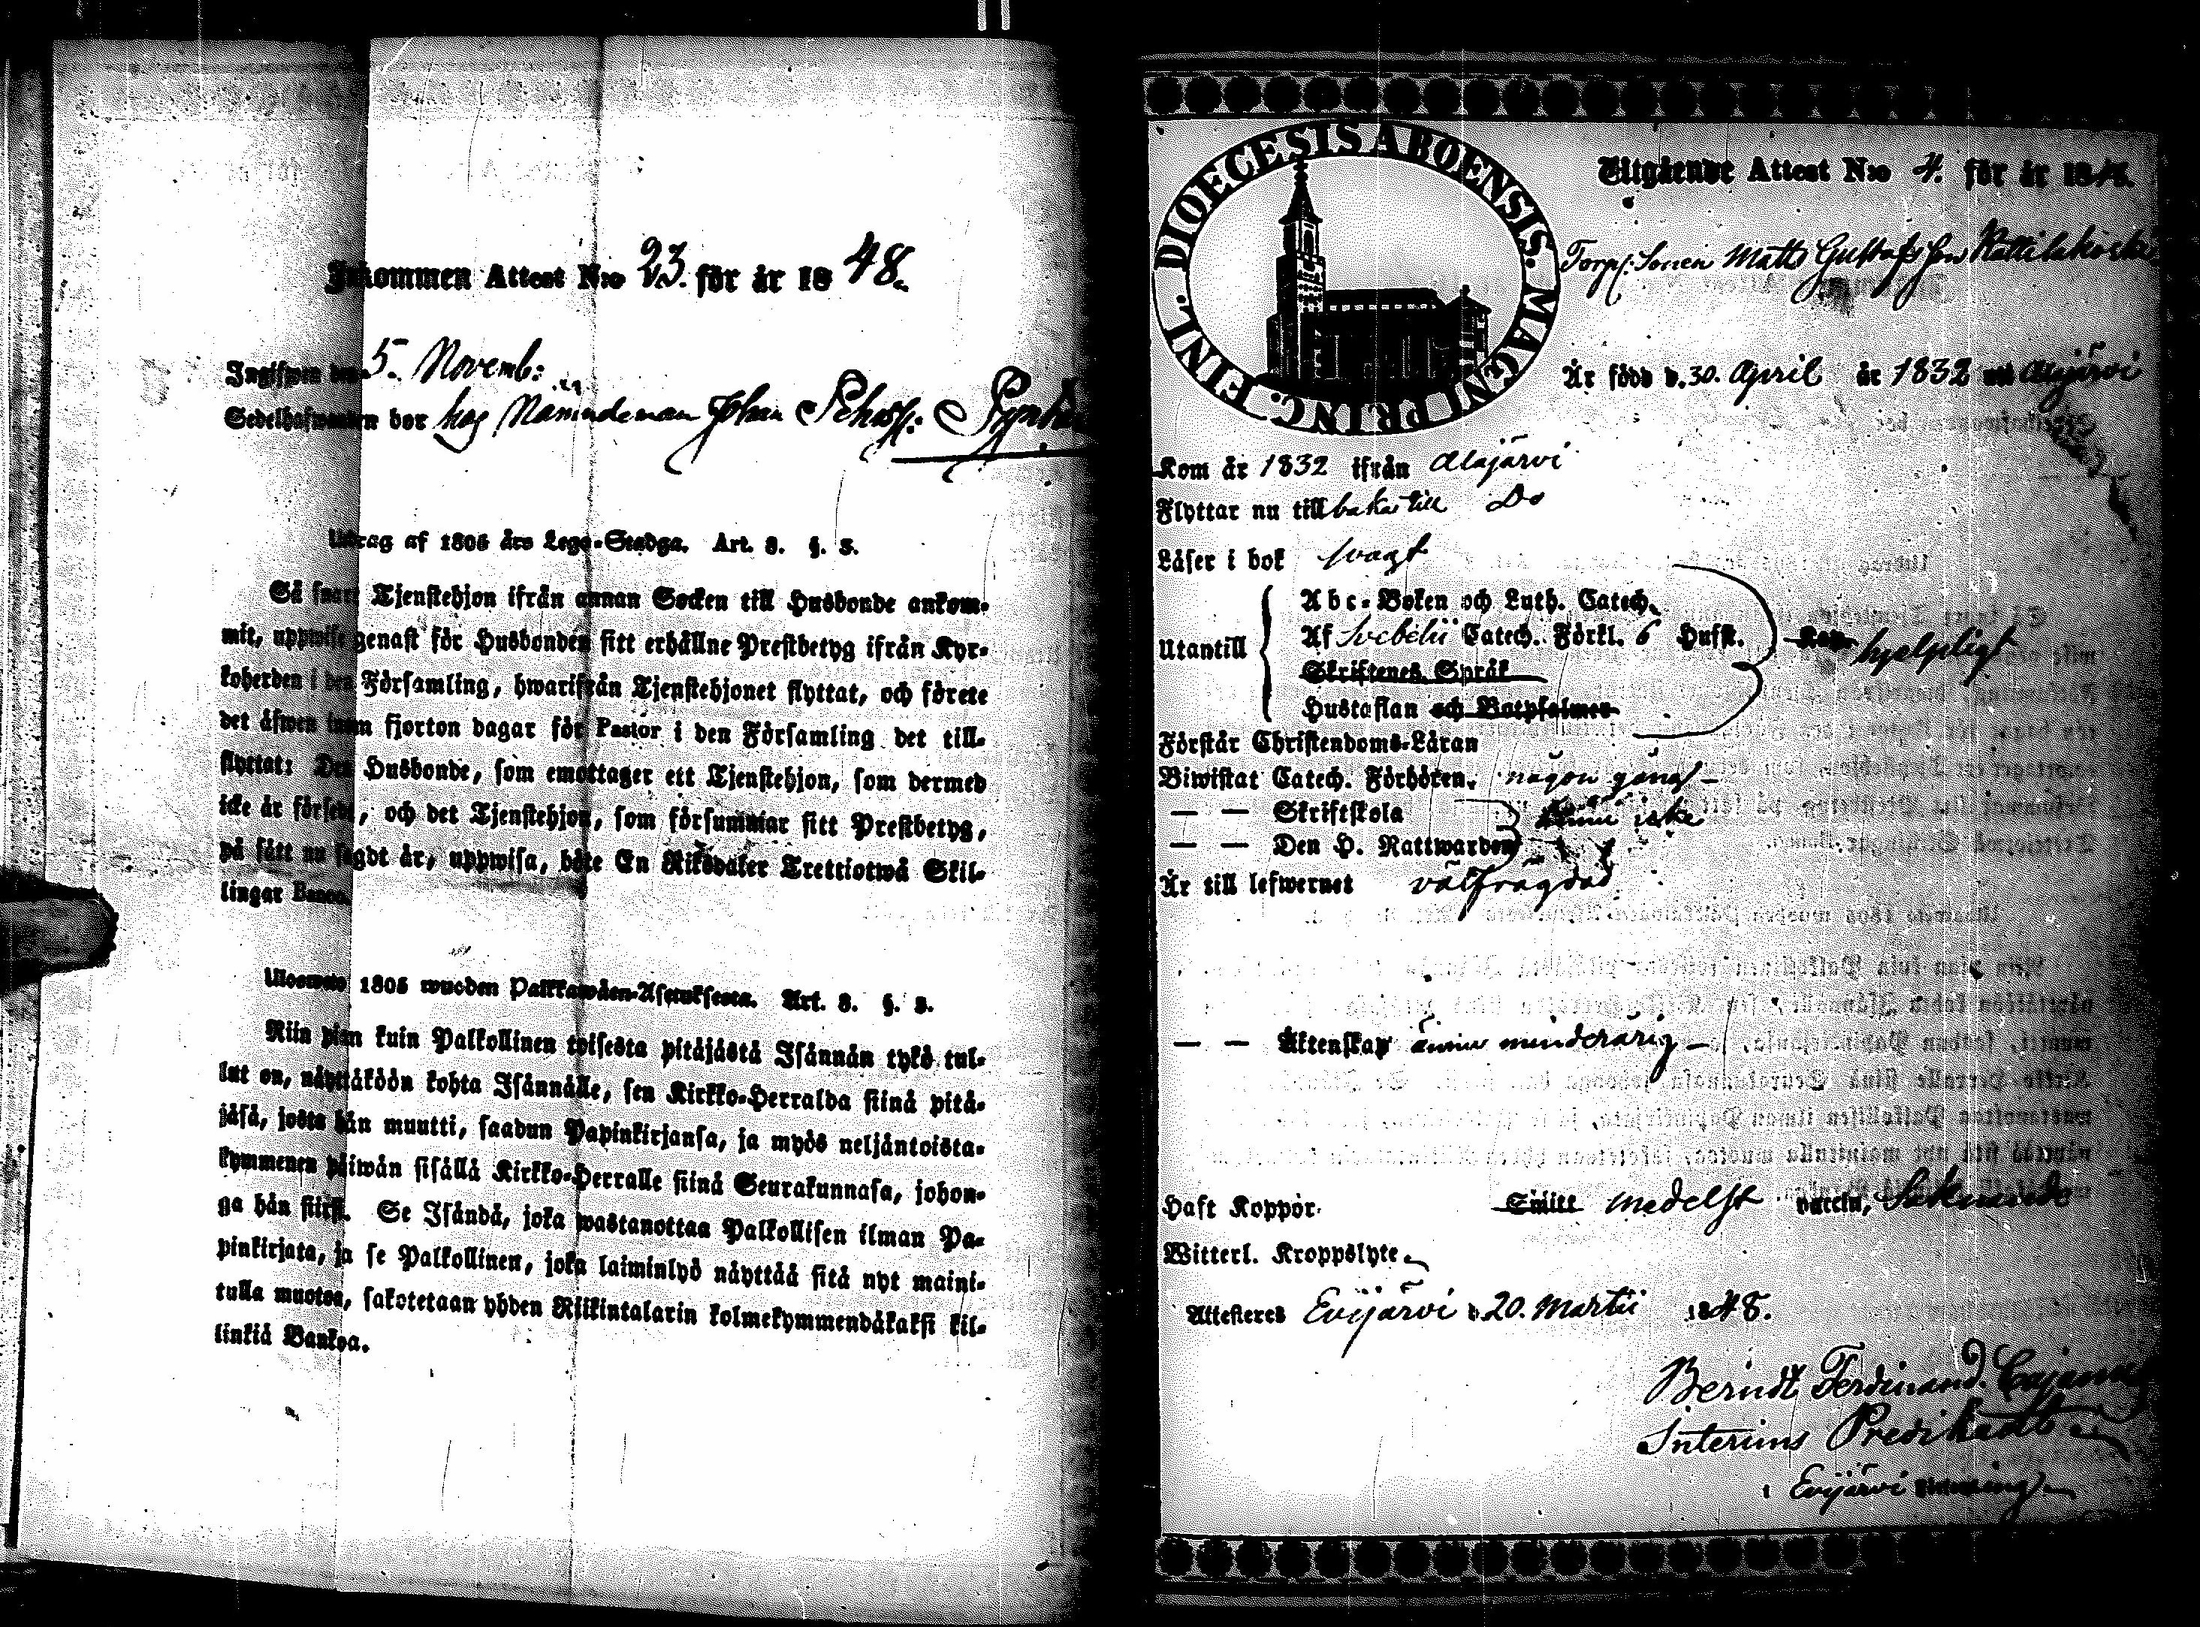 Inkommen Attest N:o 23. för år 1848.
Ingifwen den 5. Novemb:
Sedelhafwanden bor hos Nämndeman Johan
Utdrag af 1805 års Lego-Stadga. Art. 3. §. 3.
Så snart Tjenstehjon ifrån annan Socken till Husbonde ankom-
mit, uppwise genast för Husbonden sitt erhållne Prestbetyg ifrån Kyr-
koherden i den Församling, hwarifrån Tjenstehjonet flyttat, och förete
det äfwen inom fjorton dagar för Pastor i den Församling det till-
flyttat: Den Husbonde, som emottager ett Tjenstehjon, som dermed
icke är försedt, och det Tjenstehjon, som försummar sitt Prestbetyg,
på sätt nu sagdt är, uppwisa, böte En Riksdaler Trettiotwå Skil-
lingar Banco.
Ulosweto 1805 wuoden Palkkawäen-Asetuksesta. Art. 3. §. 3.
Niin pian kuin Palkollinen toisesta pitäjästä Isännän tykö tul-
lut on, näyttäköön kohta Isännälle, sen Kirkko-Herralda siinä pitä-
jäsä, josta hän muutti, saadun Papinkirjansa, ja myös neljäntoista-
kymmenen päiwän sisällä Kirkko-Herralle siinä Seurakunnasa, johon-
ga hän siirsi. Se Isändä, joka wastanottaa Palkollisen ilman Pa-
pinkirjata, ja se Palkollinen, joka laiminlyö näyttää sitä nyt maini-
tulla muotoa, sakotetaan yhden Riikintalarin kolmekymmendäkaksi kil-
linkiä Bankoa.
DIOECESIS ABOENSIS. MAGNI PRINC. FINL.
Utgående Attest N:o 4. för år 1848.
Torp. Sonen Matts Gustafsson
Är född d. 30. April år 1832 uti Alajärvi
Kom år 1832 ifrån Alajärvi
Flyttar nu tillbaka till Do
Läser i bok svagt
Utantill
Abc-Boken och Luth. Catech.
Af Svebelii Catech. Förkl. 6 Hufst.
hjelpligt
Skriftenes Språk
Hustaflan och Botpsalmer
Förstår Christendoms-Läran
Biwistat Catech. Förhören. någon gång
— — Skriftskola
ännu icke
— — Den H. Nattwarden
Är till lefwernet välfrägdad
— — Äktenskap ännu minderårig
Haft Koppor. medelst vaccin,
Witterl. Kroppslyte
Attesteres Evijärvi d. 20. Martii 1848.
Berndt Ferdinand Cajanus
Interims Predikant
i Evijärvi